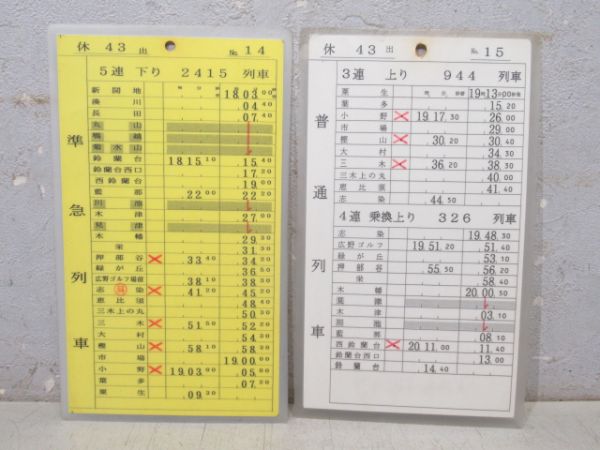 休 43 出 No. 14
5連 下り 2415 列車
準急列車
新開地 18 03 00
湊川 .04 40
長田 .07 40
丸山
鵯越
菊水山
鈴蘭台 18 15 10 .15 40
鈴蘭台西口 .17 20
西鈴蘭台 .19 00
藍那 .22 00 .22 20
川池
木津 .27 00
見津
木幡 .29 30
栄 .31 30
押部谷 .33 40 .34 20
緑が丘 .36 50
広野ゴルフ場前 .38 10 .38 50
志染 .41 20 .45
恵比須 .48
三木上の丸 .50 30
三木 .51 50 .52 20
大村 .54 30
樫山 .58 10 .58 30
市場 19.00 00
小野 19.03 00 .05 00
葉多 .07 20
粟生 .09 30
休 43 出 No. 15
3連 上り 944 列車
普通列車
粟生 19 13 00
葉多 .15 20
小野 19 17 30 .26 00
市場 .29 00
樫山 .30 20 .30 40
大村 .34 30
三木 .36 20 .38 30
三木上の丸 .40 00
恵比須 .41 40
志染 .44 50
4連 乗換上り 326 列車
志染 19.48 30
広野ゴルフ 19 51 20 .51 40
緑が丘 .53 40
押部谷 .55 50 .56 20
栄 .58 40
木幡 20.00 50
見津
木津 .03 10
川池
藍那 .08 10
西鈴蘭台 20 11 00 .11 40
鈴蘭台西口 .13 00
鈴蘭台 .14 40